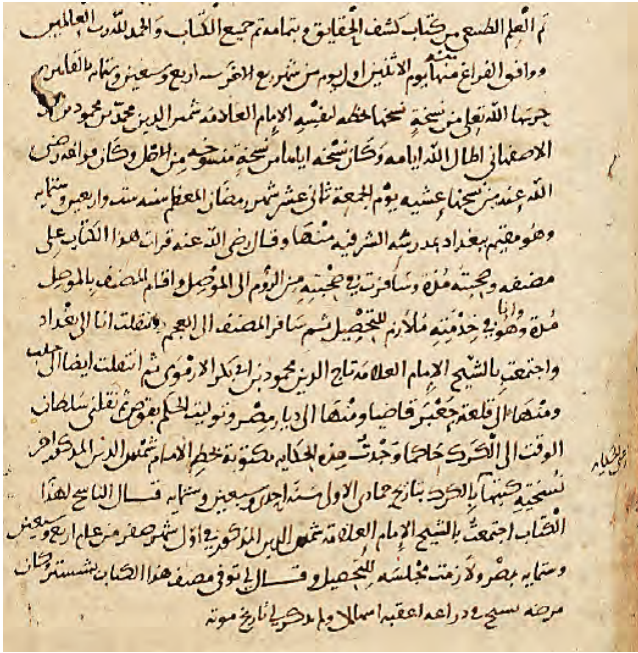 تم العلم الطبيعي من كتاب كشف الحقايق وبتمامه تم جميع الكتاب والحمد لله رب العالمين
ووافق الفراغ منه يوم الاثنين اول يوم من شهر ربيع الاخر سنه اربع وسبعين وستمايه بالقاهره
حرسها الله تعلى من نسخةٍ نسخها بخطه لنفسه الإمام العلامه شمس الدين محمد بن محمود بن
الاصفهاني اطال الله ايامه وكان نسخه اياها من نسخةٍ منسوخه من الاصل وكان فراغه رضى
الله عنه من نسخها عشيه يوم الجمعة ثاني عشر شهر رمضان المعظم سنه ست واربعين وستمايه
وهو مقيم ببغداد بمدرسه الشرفيه منها وقال رضى الله عنه قرات هذا الكتاب على
مصنفه وصحبته مُدة وسافرت في صحبته من الروم الى الموصل واقام المصنف بالموصل
مُدة وانا في خدمته مُلازم للتحصيل ثم سافر المصنف الى العجم وانتقلت انا الى بغداد
واجتمعت بالشيخ الإمام العلامه تاج الدين محمود بن ابي بكر الارموى ثم انتقلت ايضا الى حلب
ومنها الى قلعة جعبر قاضيا ومنها الى ديار مصر وتوليت الحكم بقوص ثم نقلنى سلطان
الوقت الى الكرك حاكما وجدتُ هذه الحكايه مكتوبة بخط الامام شمس الدين المذكور اخر
نسخته كتبها بالكرك بتاريخ جمادى الاولى سنه احدى وسبعين وستمايه قال الناسخ لهذا
الكتاب اجتمعتُ بالشيخ الإمام العلامه شمس الدين المذكور في اول شهر صفر من عام اربع وسبعين
وستمايه بمصر ولازمت مجلسه للتحصيل وقال لى توفى مصنف هذا الكتاب بشستر وكان
مرضه في دراعه اعقبه اسهالا ولم يذكر لى تاريخ موته